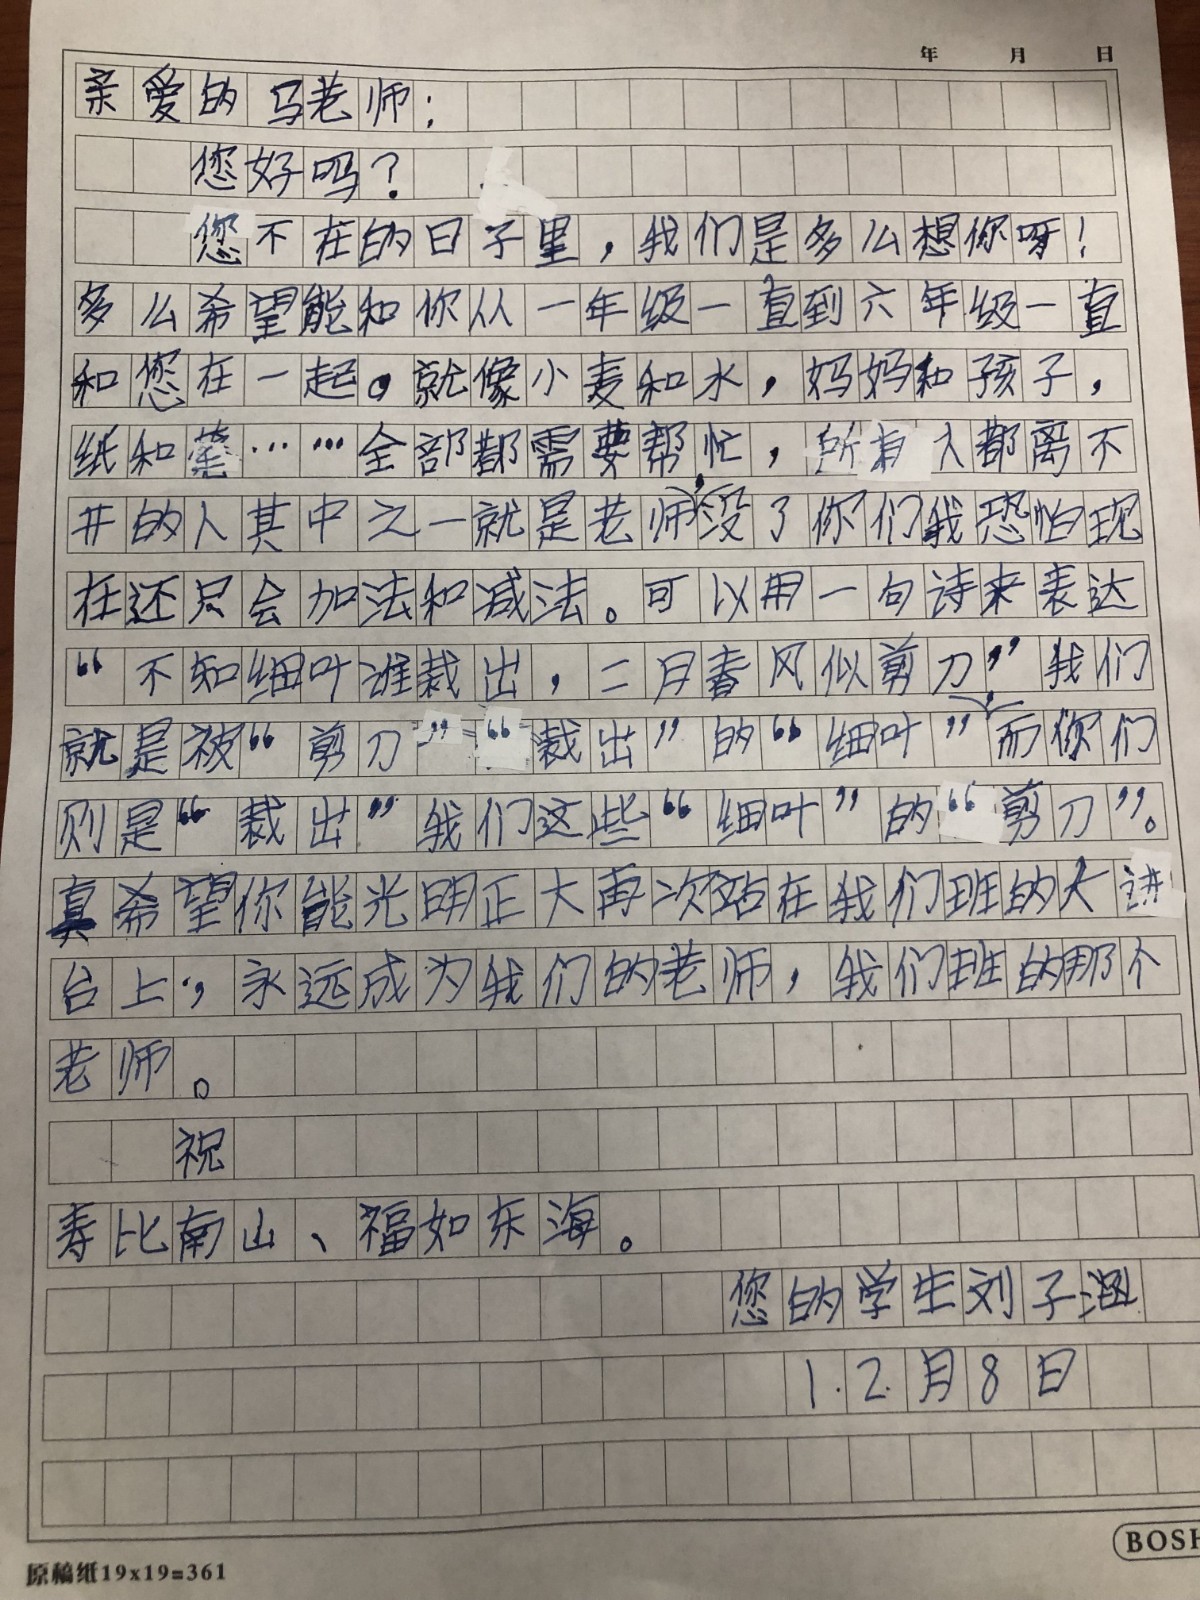 年 月 日
亲爱的马老师：
您好吗？
您不在的日子里，我们是多么想你呀！
多么希望能和你从一年级一直到六年级一直
和您在一起。就像小麦和水，妈妈和孩子，
纸和笔……全部都需要帮忙，所有人都离不
开的人其中之一就是老师，没了你们我恐怕现
在还只会加法和减法。可以用一句诗来表达
“不知细叶谁裁出，二月春风似剪刀”我们
就是被“剪刀”“裁出”的“细叶”，而你们
则是“裁出”我们这些“细叶”的“剪刀”。
真希望你能光明正大再次站在我们班的大讲
台上，永远成为我们的老师，我们班的那个
老师。
祝
寿比南山、福如东海。
您的学生刘子涵
12月8日
原稿纸19x19=361
BOSH